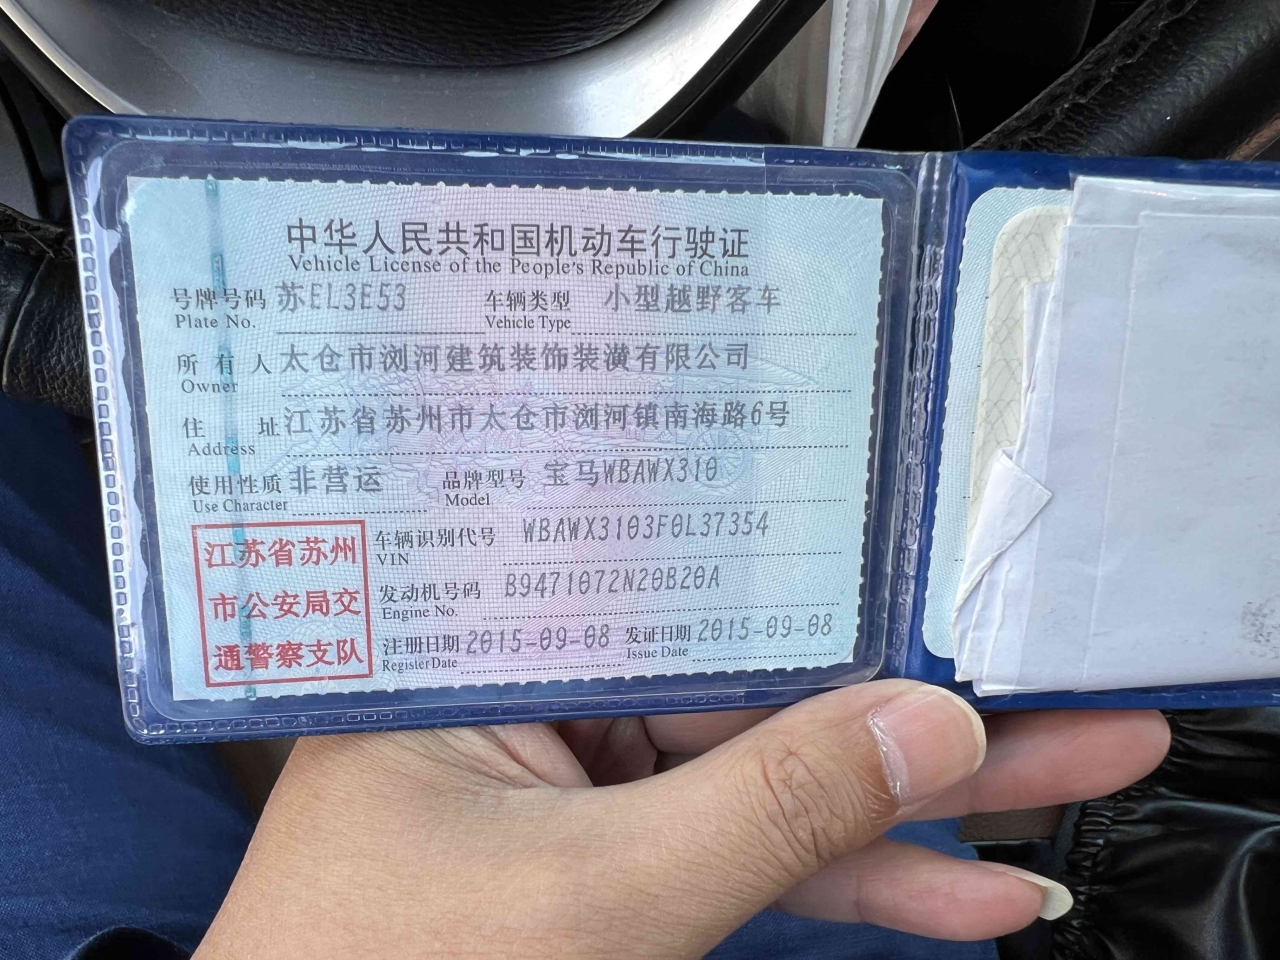 中华人民共和国机动车行驶证
Vehicle License of the People's Republic of China
号牌号码 苏EL3E53 车辆类型 小型越野客车
Plate No. Vehicle Type
所有人 太仓市浏河建筑装饰装潢有限公司
Owner
住址 江苏省苏州市太仓市浏河镇南海路6号
Address
使用性质 非营运 品牌型号 宝马WBAWX310
Use Character Model
江苏省苏州
市公安局交
通警察支队
车辆识别代号 WBAWX3103F0L37354
VIN
发动机号码 B9471072N20B20A
Engine No.
注册日期 2015-09-08 发证日期 2015-09-08
Register Date Issue Date